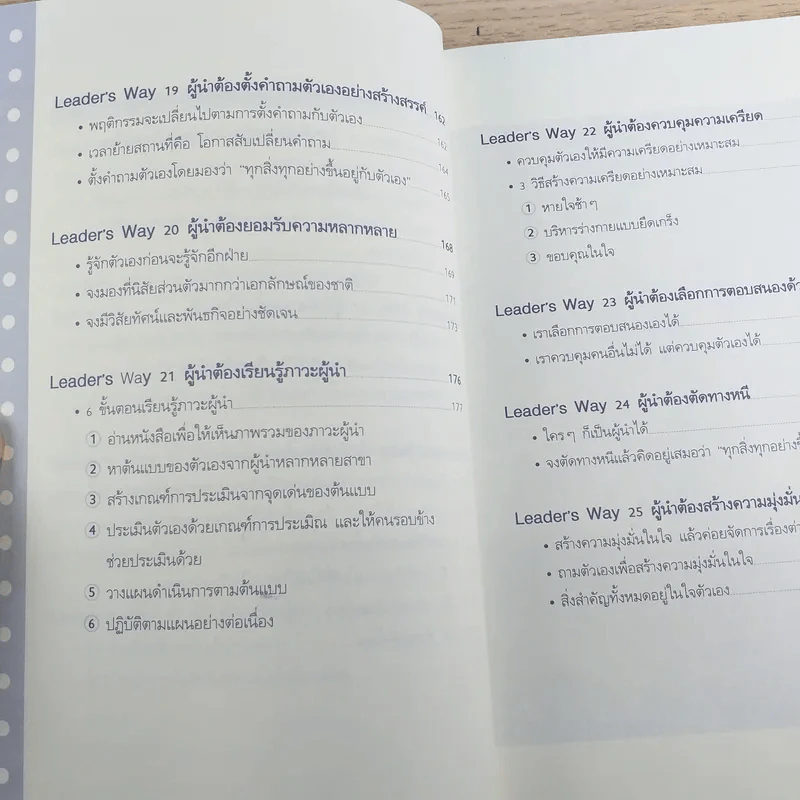 Leader's Way 19 ผู้นำต้องตั้งคำถามตัวเองอย่างสร้างสรรค์ 162
• พฤติกรรมจะเปลี่ยนไปตามการตั้งคำถามกับตัวเอง 162
• เวลาย้ายสถานที่คือ โอกาสสับเปลี่ยนคำถาม 164
• ตั้งคำถามตัวเองโดยมองว่า "ทุกสิ่งทุกอย่างขึ้นอยู่กับตัวเอง" 165
Leader's Way 20 ผู้นำต้องยอมรับความหลากหลาย 168
• รู้จักตัวเองก่อนจะรู้จักอีกฝ่าย 169
• จงมองที่นิสัยส่วนตัวมากกว่าเอกลักษณ์ของชาติ 171
• จงมีวิสัยทัศน์และพันธกิจอย่างชัดเจน 173
Leader's Way 21 ผู้นำต้องเรียนรู้ภาวะผู้นำ 176
• 6 ขั้นตอนเรียนรู้ภาวะผู้นำ 177
1 อ่านหนังสือเพื่อให้เห็นภาพรวมของภาวะผู้นำ
2 หาต้นแบบของตัวเองจากผู้นำหลากหลายสาขา
3 สร้างเกณฑ์การประเมินจากจุดเด่นของต้นแบบ
4 ประเมินตัวเองด้วยเกณฑ์การประเมิณ และให้คนรอบข้าง
ช่วยประเมินด้วย
5 วางแผนดำเนินการตามต้นแบบ
6 ปฏิบัติตามแผนอย่างต่อเนื่อง
Leader's Way 22 ผู้นำต้องควบคุมความเครียด
• ควบคุมตัวเองให้มีความเครียดอย่างเหมาะสม
• 3 วิธีสร้างความเครียดอย่างเหมาะสม
1 หายใจช้าๆ
2 บริหารร่างกายแบบยืดเกร็ง
3 ขอบคุณในใจ
Leader's Way 23 ผู้นำต้องเลือกการตอบสนองด้ว
• เราเลือกการตอบสนองเองได้
• เราควบคุมคนอื่นไม่ได้ แต่ควบคุมตัวเองได้
Leader's Way 24 ผู้นำต้องตัดทางหนี
• ใครๆ ก็เป็นผู้นำได้
• จงตัดทางหนีแล้วคิดอยู่เสมอว่า "ทุกสิ่งทุกอย่างขึ้
Leader's Way 25 ผู้นำต้องสร้างความมุ่งมั่น
• สร้างความมุ่งมั่นในใจ แล้วค่อยจัดการเรื่องต่า
• ถามตัวเองเพื่อสร้างความมุ่งมั่นในใจ
• สิ่งสำคัญทั้งหมดอยู่ในใจตัวเอง